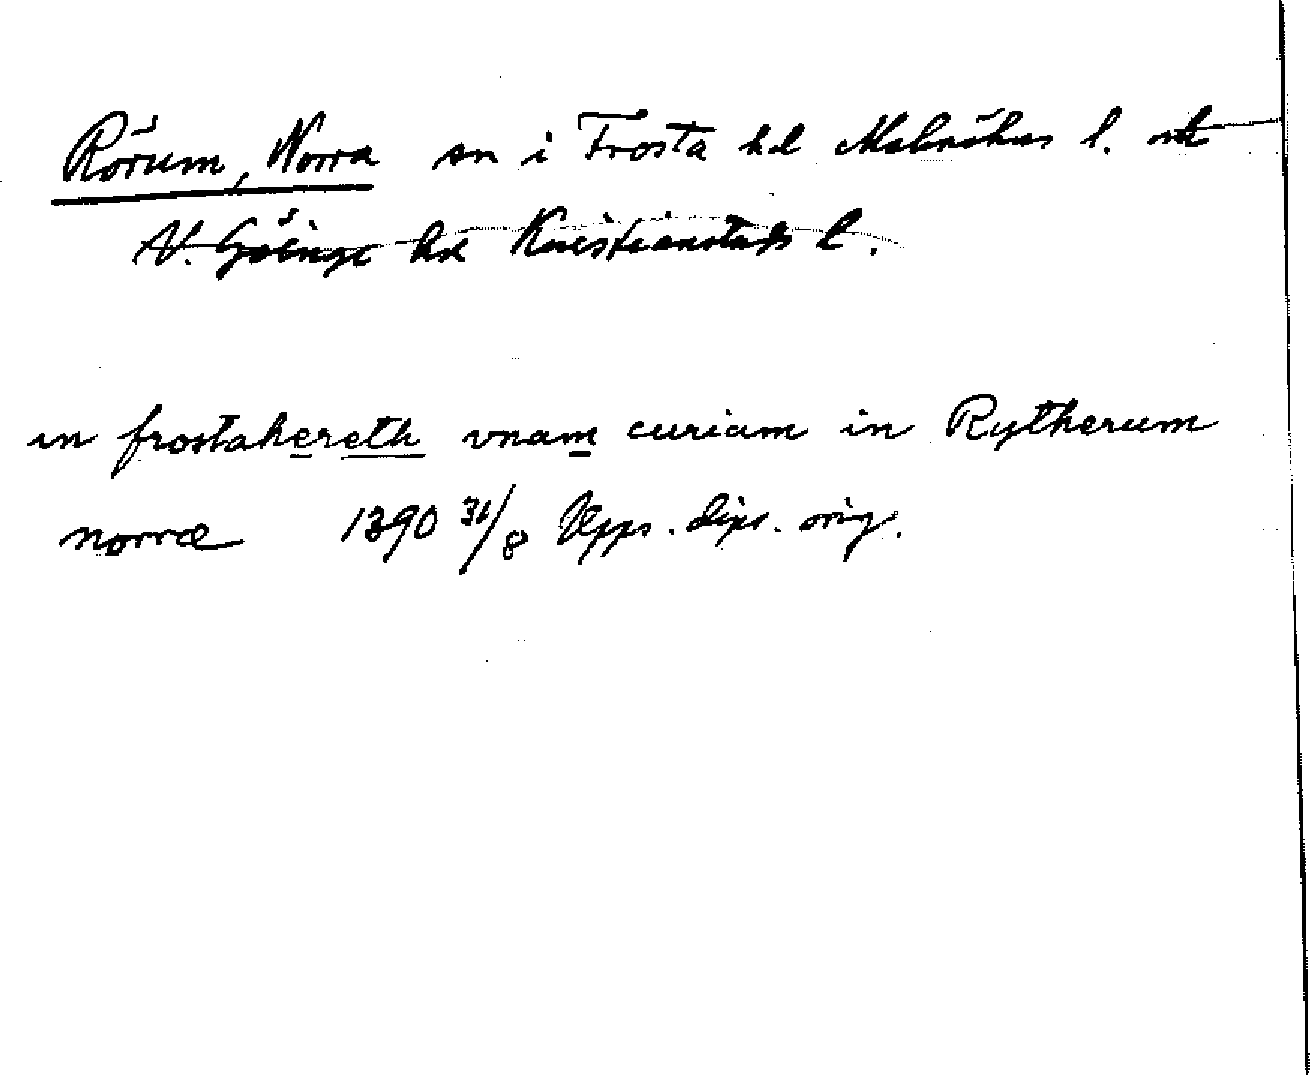 Rörum, Norra sn i Frosta hd Malmöhus l. och
V. Göinge hd Kristianstads l.
in frostahereth vnam curiam in Rytherum
norræ 1390 31/8 Upps. dipl. orig.